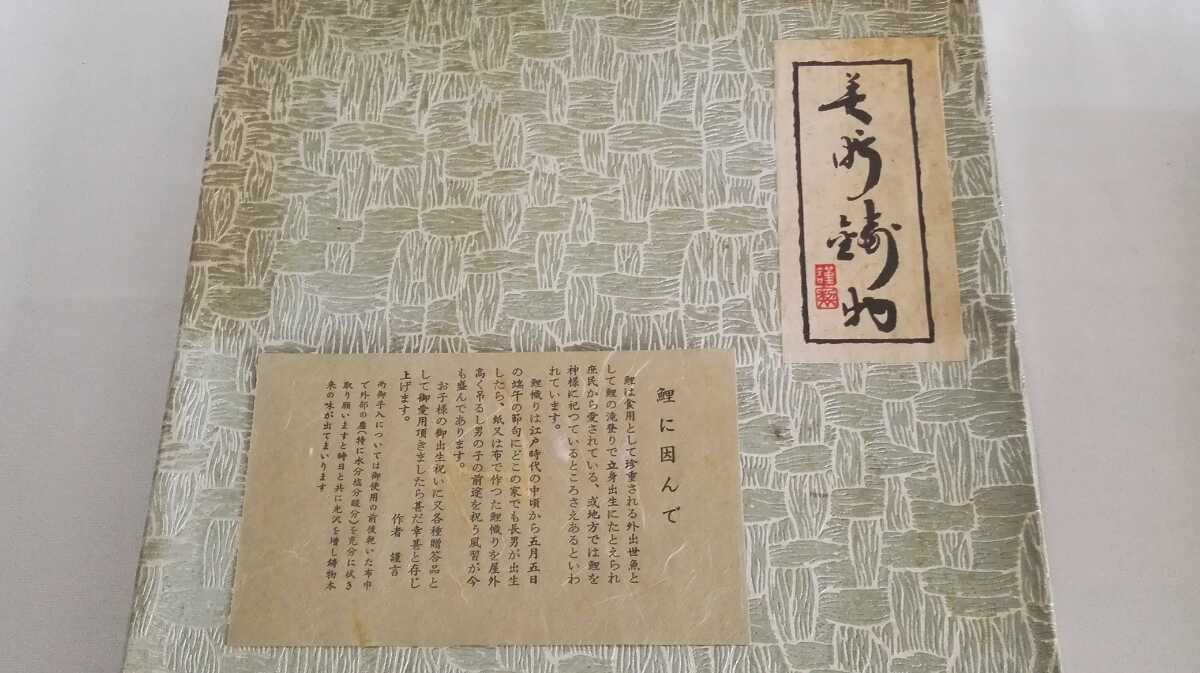 鋳物
謹製
鯉に因んで
鯉は食用として珍重される外出世魚と
して鯉の滝登りで立身出生にたとえられ
庶民から愛されている、或地方では鯉を
神様に祀つているところさえあるといわ
れています。
鯉幟りは江戸時代の中頃から五月五日
の端午の節句にどこの家でも長男が出生
したら、紙又は布で作つた鯉幟りを屋外
高く吊るし男の子の前途を祝う風習が今
も盛んであります。
お子様の御出生祝いに又各種贈答品と
して御愛用頂きましたら甚だ幸甚と存じ
上げます。
作者 謹言
尚御手入については御使用の前後乾いた布巾
で外部の塵(特に水分塩分酸分)を充分に拭き
取り願いますと時日と共に光沢を増し鋳物本
来の味が出てまいります